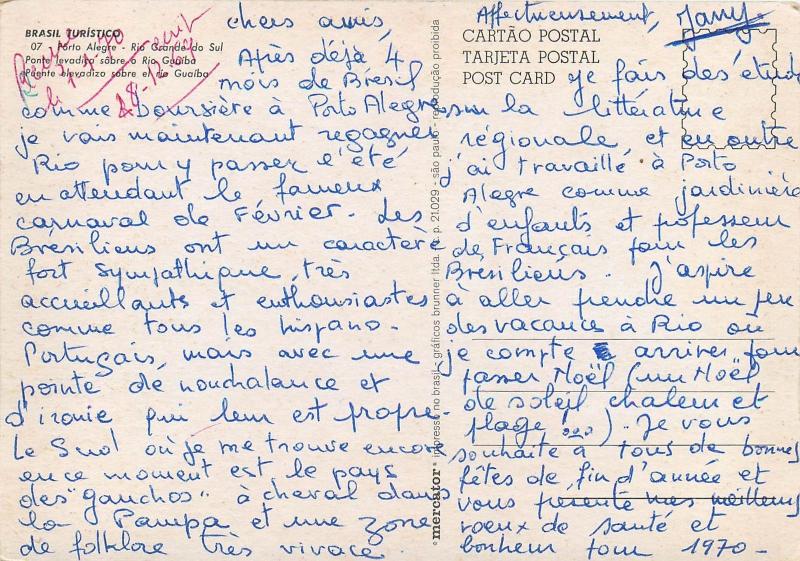 BRASIL TURÍSTICO
07 - Porto Alegre - Rio Grande do Sul
Ponte levadiço sôbre o Rio Guaíba
Puente elevadizo sobre el río Guaíba
chers amis,
Après déjà 4
mois de Brésil
comme boursière à Porto Alegre
je vais maintenant regagner
Rio pour y passer l'été
en attendant le fameux
carnaval de Février. Les
Brésiliens ont un caractère
fort sympathique, très
accueillants et enthousiastes
comme tous les hispano-
Portugais, mais avec une
pointe de nonchalance et
d'ironie qui leur est propre.
Le Sud où je me trouve encore
en ce moment est le pays
des "gauchos" à cheval dans
la Pampa et une zone
de folklore très vivace.
mercator impresso no brasil - gráficos brunner ltda. c. p. 21029 - são paulo - reprodução proibida
CARTÃO POSTAL
TARJETA POSTAL
POST CARD
je fais des étud
sur la littérature
régionale, et en outre
j'ai travaillé à Porto
Alegre comme jardinière
d'enfants et professeur
de Français pour les
Brésiliens. J'aspire
à aller prendre un peu
des vacances à Rio où
je compte arriver pour
passer Noël (un Noël
de soleil chaleur et
plage !...). Je vous
souhaite à tous de bonnes
fêtes de fin d'année et
vous présente mes meilleurs
voeux de santé et
bonheur pour 1970-
Affectueusement, Jany